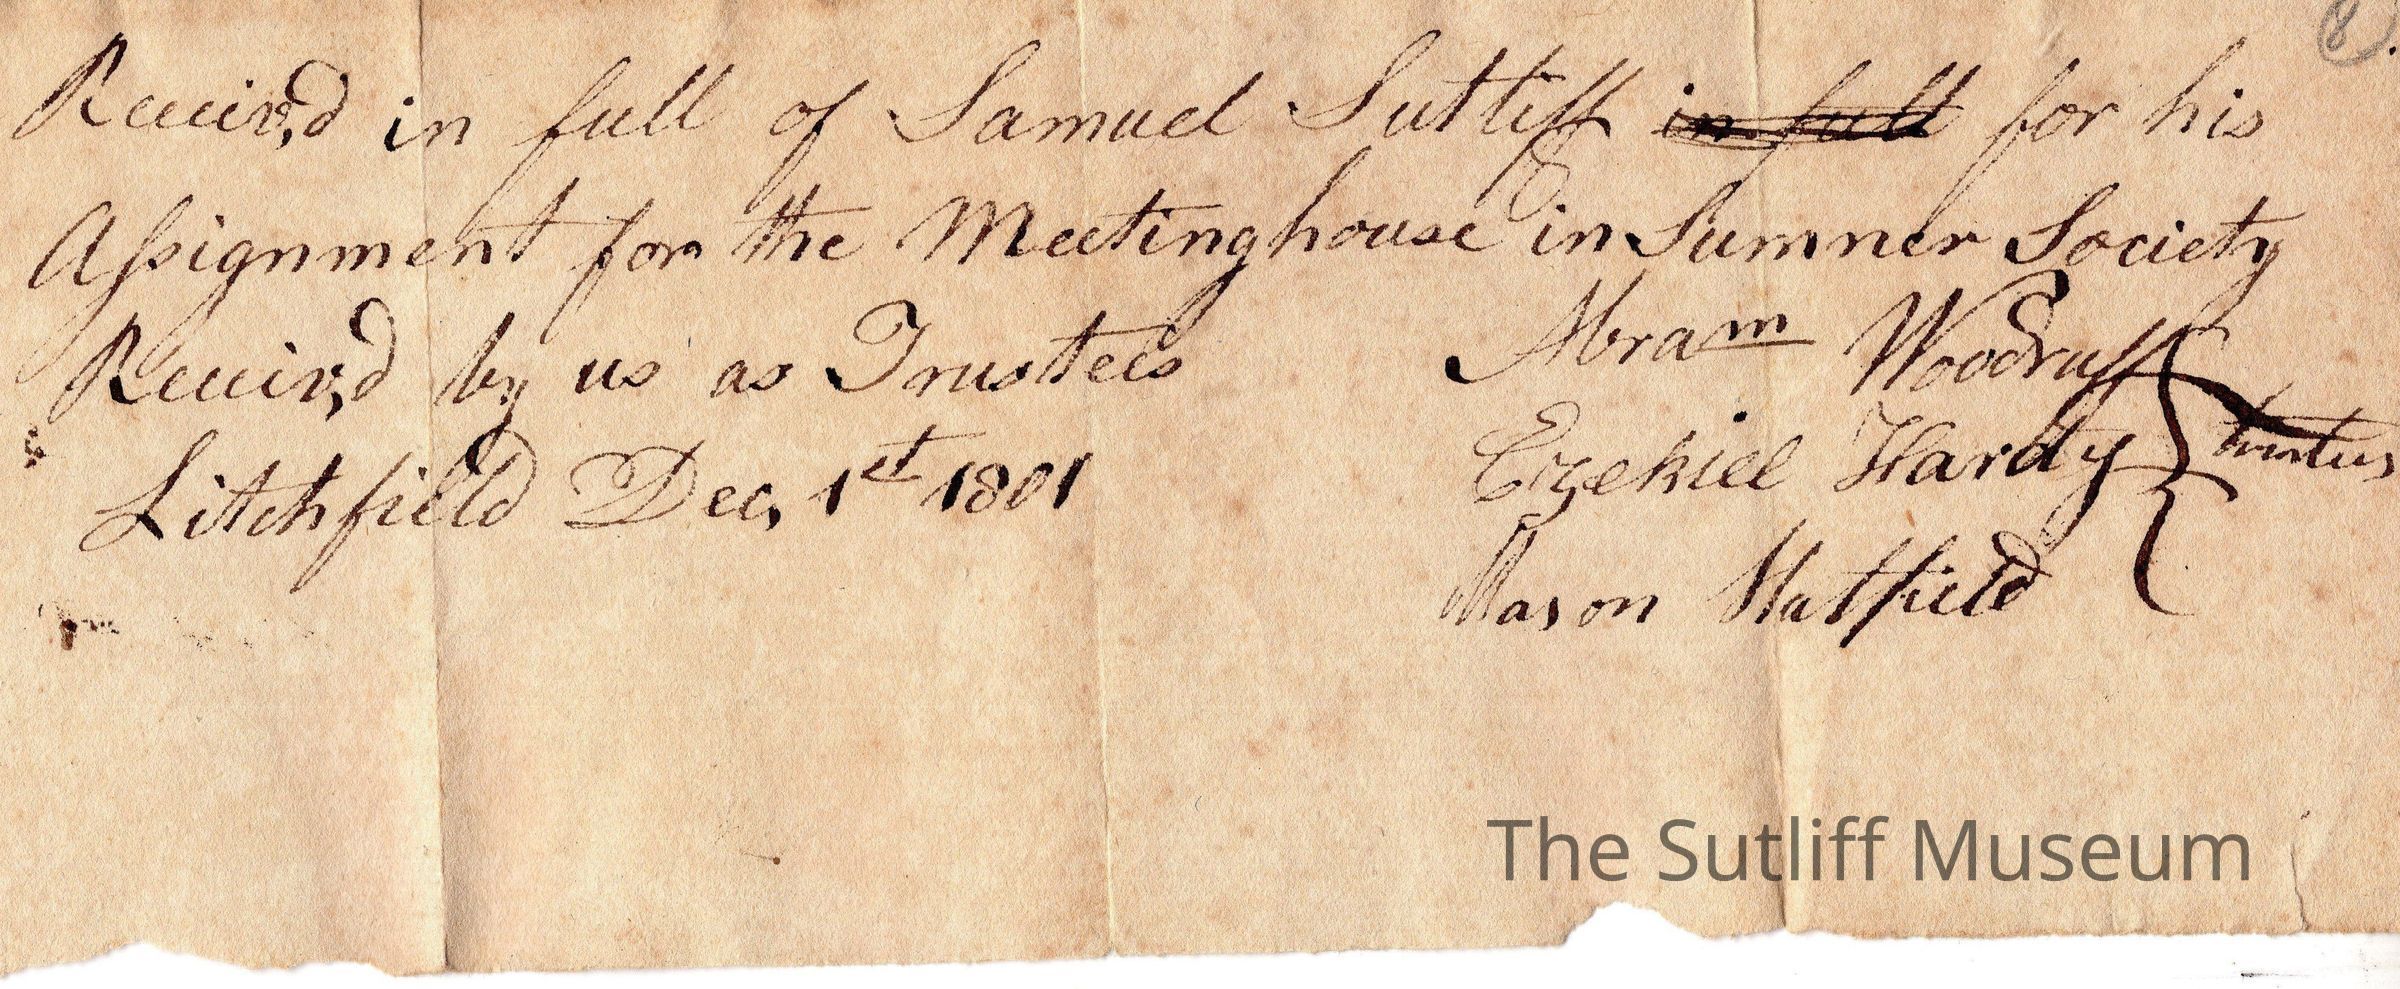 8
Receiv,d in full of Samuel Sutliff in full for his
Assignment for the Meetinghouse in Sumner Society
Receiv,d by us as Trustees
Litchfield Dec, 1st 1801
Abram Woodruff
Ezekiel Hardy
Mason Hatfield
The Sutliff Museum